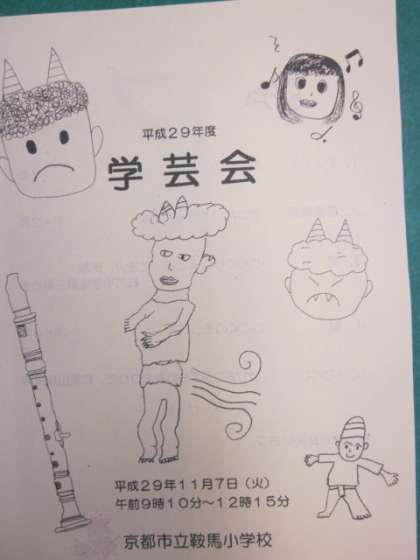 平成29年度
学芸会
平成29年11月7日（火）
午前9時10分～12時15分
京都市立鞍馬小学校